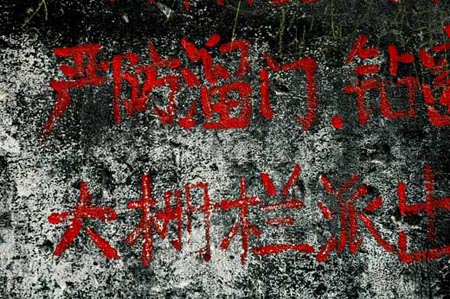 严防溜门、钻窗
大栅栏派出